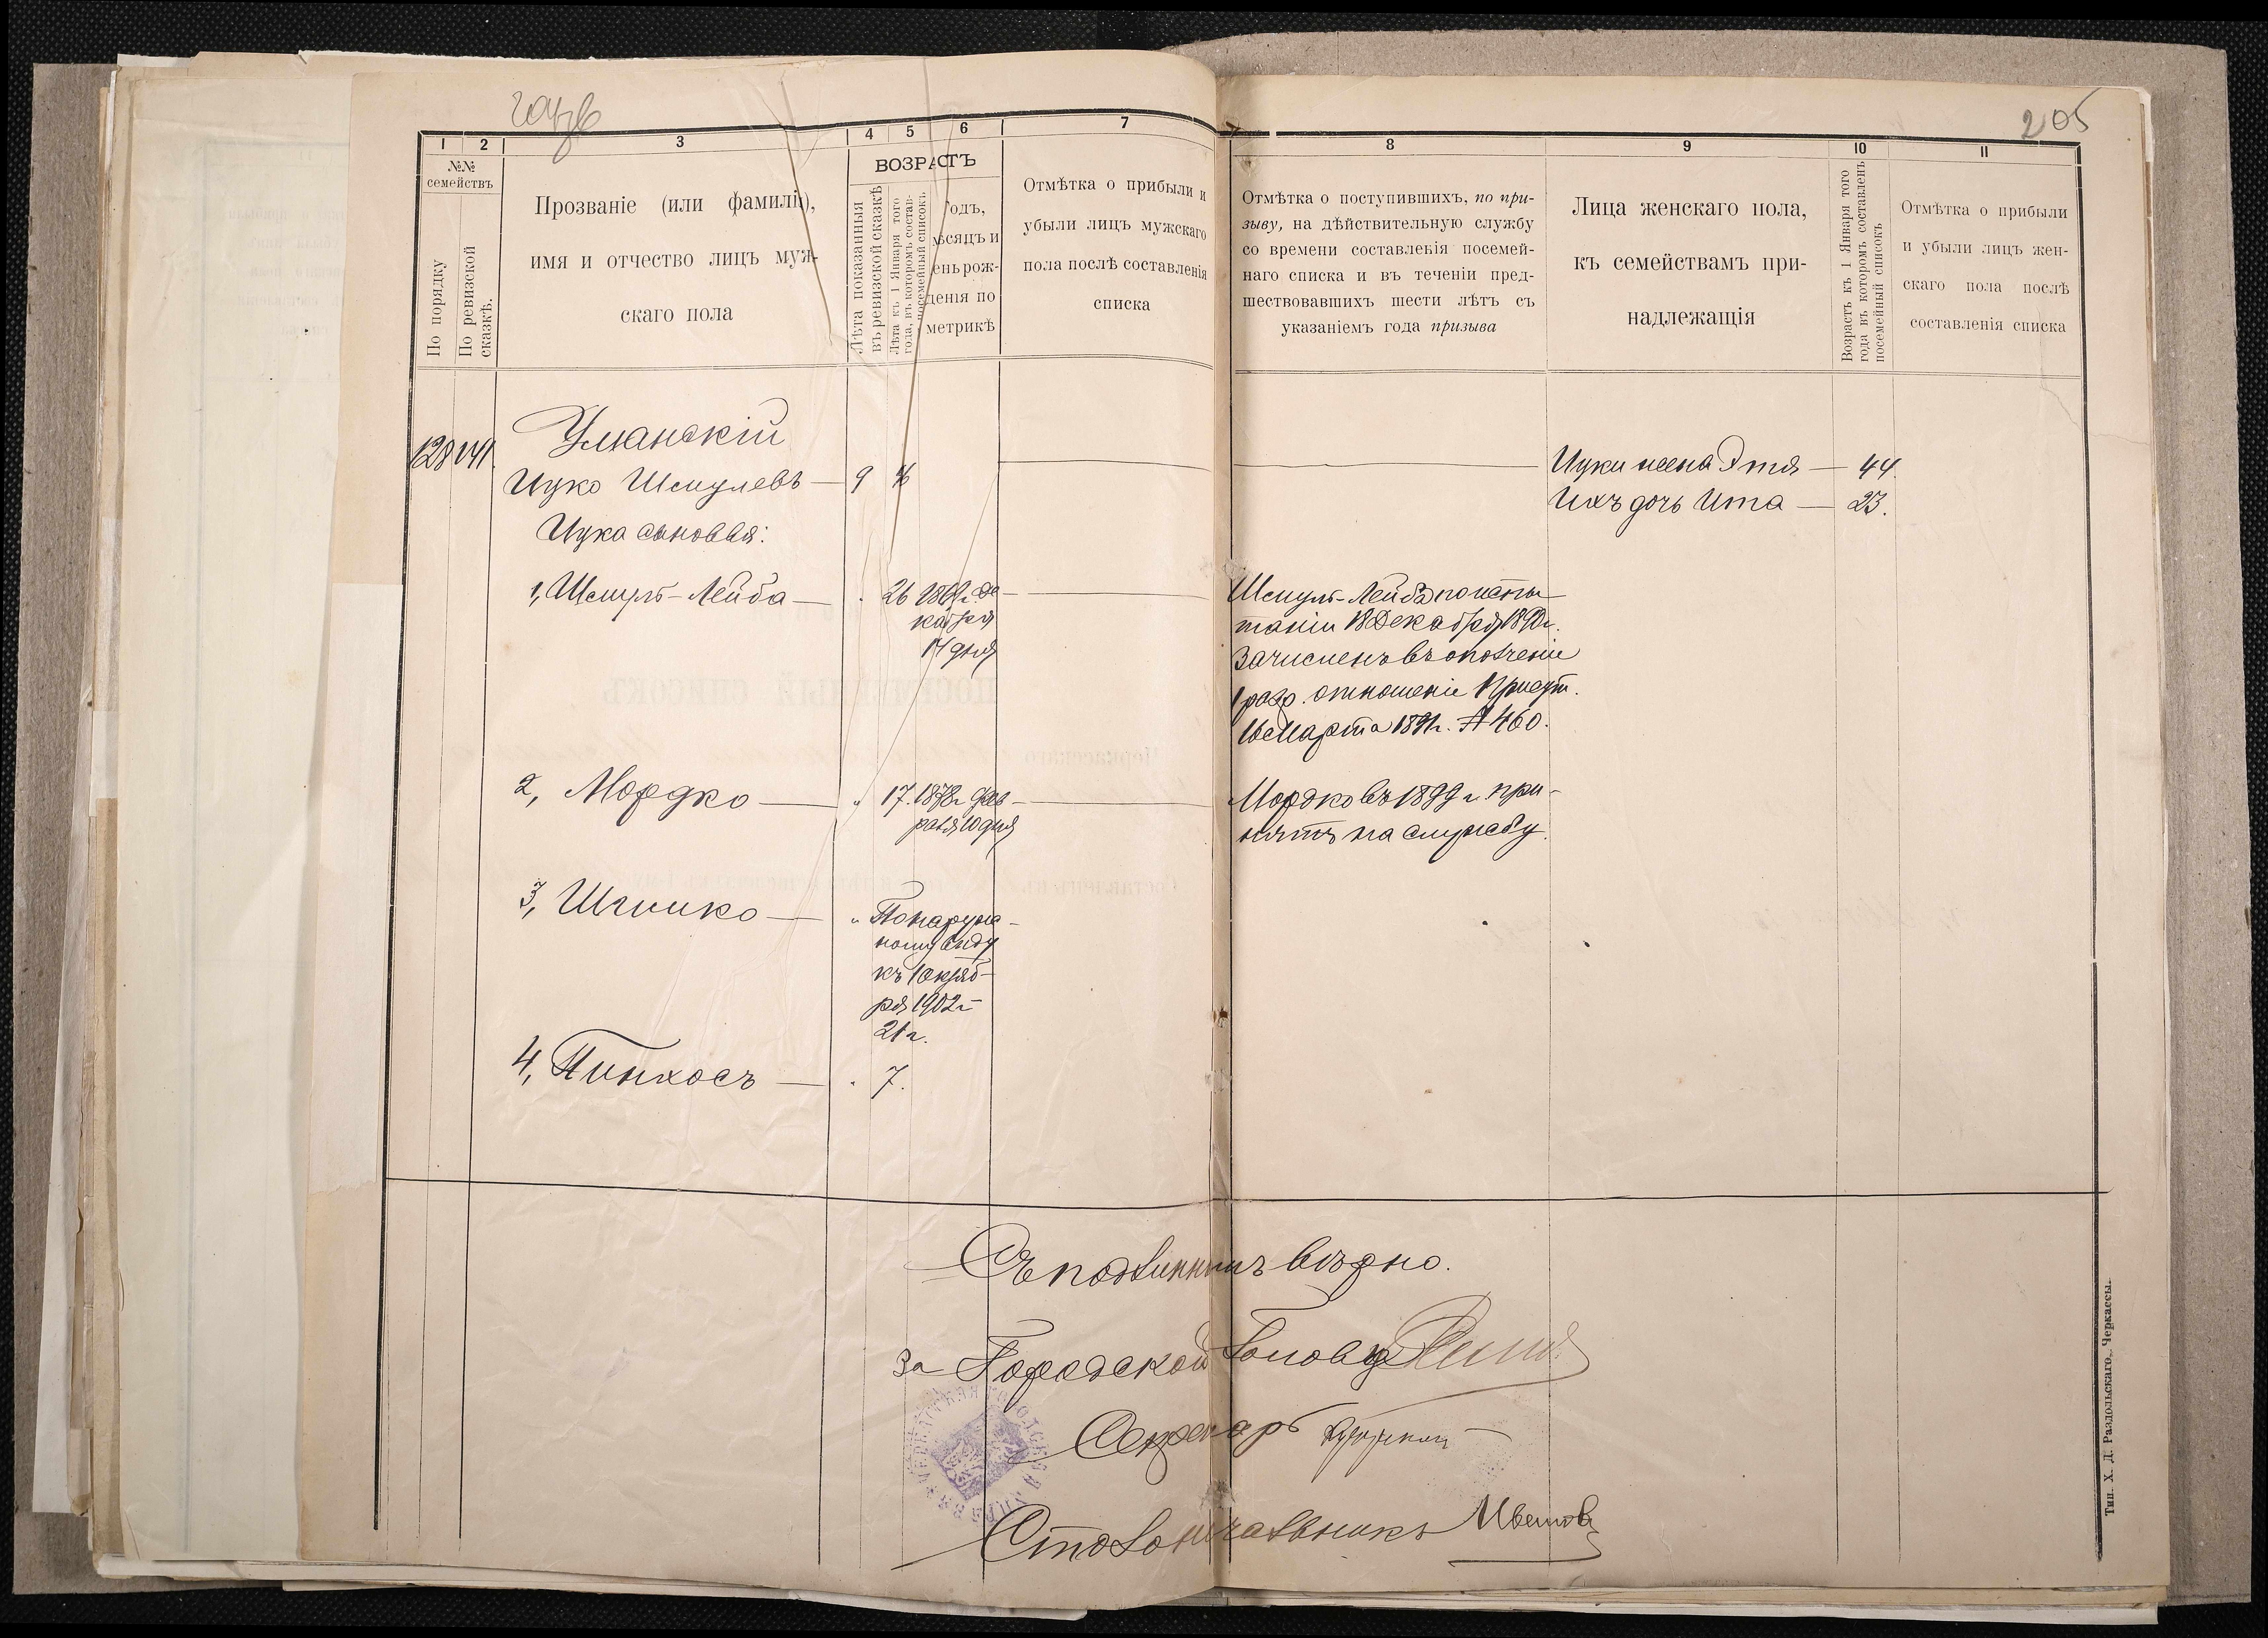 205
1 2 3 4 5 6 7 8 9 10 11
№№
семействъ
По порядку
По ревизской
сказкѣ.
Прозваніе (или фамилія),
имя и отчество лицъ муж-
скаго пола
ВОЗРАСТЪ
Лѣта показанныя
въ ревизской сказкѣ
Лѣта къ 1 Января того
года, въ которомъ состав-
посемейный списокъ
Годъ,
мѣсяцъ и
день рож-
денія по
метрикѣ
Отмѣтка о прибыли и
убыли лицъ мужскаго
пола послѣ составленія
списка
Отмѣтка о поступившихъ, по при-
зыву, на дѣйствительную службу
со времени составленія посемей-
наго списка и въ теченіи пред-
шествовавшихъ шести лѣтъ съ
указаніемъ года призыва
Лица женскаго пола,
къ семействамъ при-
надлежащія
Возрастъ къ 1 Января того
года въ которомъ составленъ
посемейный списокъ
Отмѣтка о прибыли
и убыли лицъ жен-
скаго пола послѣ
составленія списка
128 141.
Уманскій
Ицко Шмулевъ — 9
Ицка сыновья:
Ицки жена Этя — 44.
Ихъ дочь Ита — 23.
1, Шмуль-Лейба — 26 1869г. Де
кабря
14 дня
Шмуль-Лейба по испы
таніи 18 Декабря 1890г.
зачисленъ въ ополченіе
1 разр. отношеніе Присут.
16 Марта 1891г. № 460.
2, Мордко — " 17. 1878г. Фев-
раля 10 дня
Мордко въ 1899 г. при-
нятъ на службу.
3, Шимко — " По наруж-
ному виду
къ 1 Октяб-
ря 1902г
21 г.
4, Пинхосъ — 7.
Съ подлиннымъ вѣрно.
За Городской Голова
Секретарь
Столоначальникъ
Тип. Х. Д. Раздольскаго, Черкассы.